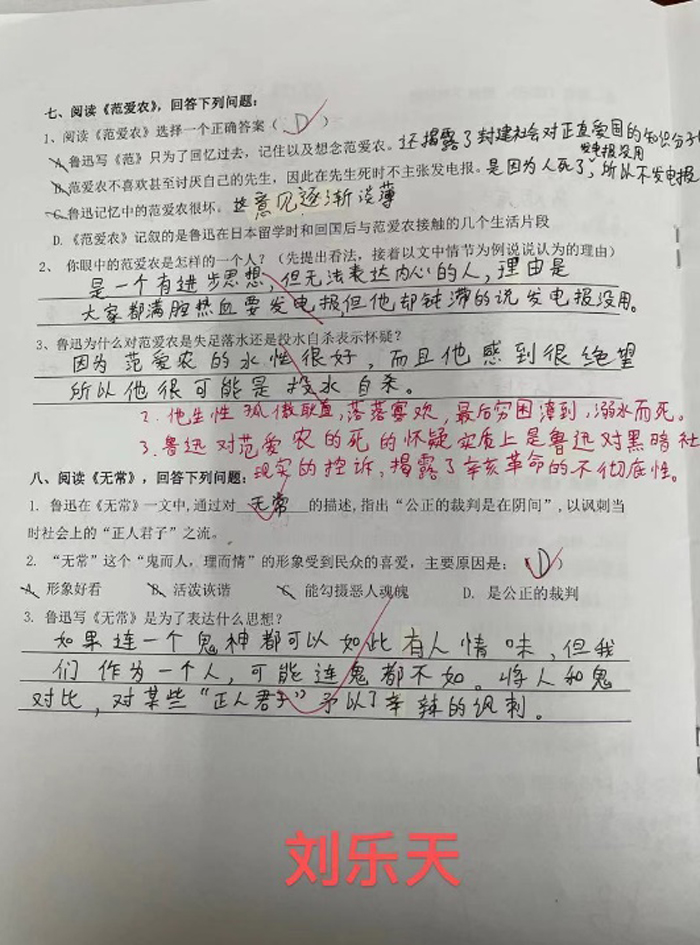 七、阅读《范爱农》，回答下列问题：
1、阅读《范爱农》选择一个正确答案（ D ）
A、鲁迅写《范》只为了回忆过去，记住以及想念范爱农。还揭露了封建社会对正直爱国的知识分子
发电报没用
B、范爱农不喜欢甚至讨厌自己的先生，因此在先生死时不主张发电报。是因为人死了，所以不发电报
C、鲁迅记忆中的范爱农很坏。这意见逐渐淡薄
D、《范爱农》记叙的是鲁迅在日本留学时和回国后与范爱农接触的几个生活片段
2、 你眼中的范爱农是怎样的一个人？（先提出看法，接着以文中情节为例说说认为的理由）
是一个有进步思想，但无法表达内心的人，理由是
大家都满腔热血要发电报，但他却钝滞的说发电报没用。
3、鲁迅为什么对范爱农是失足落水还是投水自杀表示怀疑？
因为范爱农的水性很好，而且他感到很绝望
所以他很可能是投水自杀。
2. 他生性孤傲耿直，落落寡欢，最后穷困潦倒，溺水而死。
3. 鲁迅对范爱农的死的怀疑实质上是鲁迅对黑暗社
现实的控诉，揭露了辛亥革命的不彻底性。
八、阅读《无常》，回答下列问题：
1. 鲁迅在《无常》一文中，通过对 无常 的描述，指出“公正的裁判是在阴间”，以讽刺当
时社会上的“正人君子”之流。
2. “无常”这个“鬼而人，理而情”的形象受到民众的喜爱，主要原因是：（ D ）
A、形象好看 B、活泼诙谐 C、能勾摄恶人魂魄 D. 是公正的裁判
3. 鲁迅写《无常》是为了表达什么思想？
如果连一个鬼神都可以如此有人情味，但我
们作为一个人，可能连鬼都不如。将人和鬼
对比，对某些“正人君子”予以了辛辣的讽刺。
刘乐天